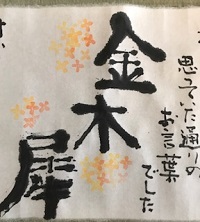 思っていた通りの
お言葉
でした
金木
犀